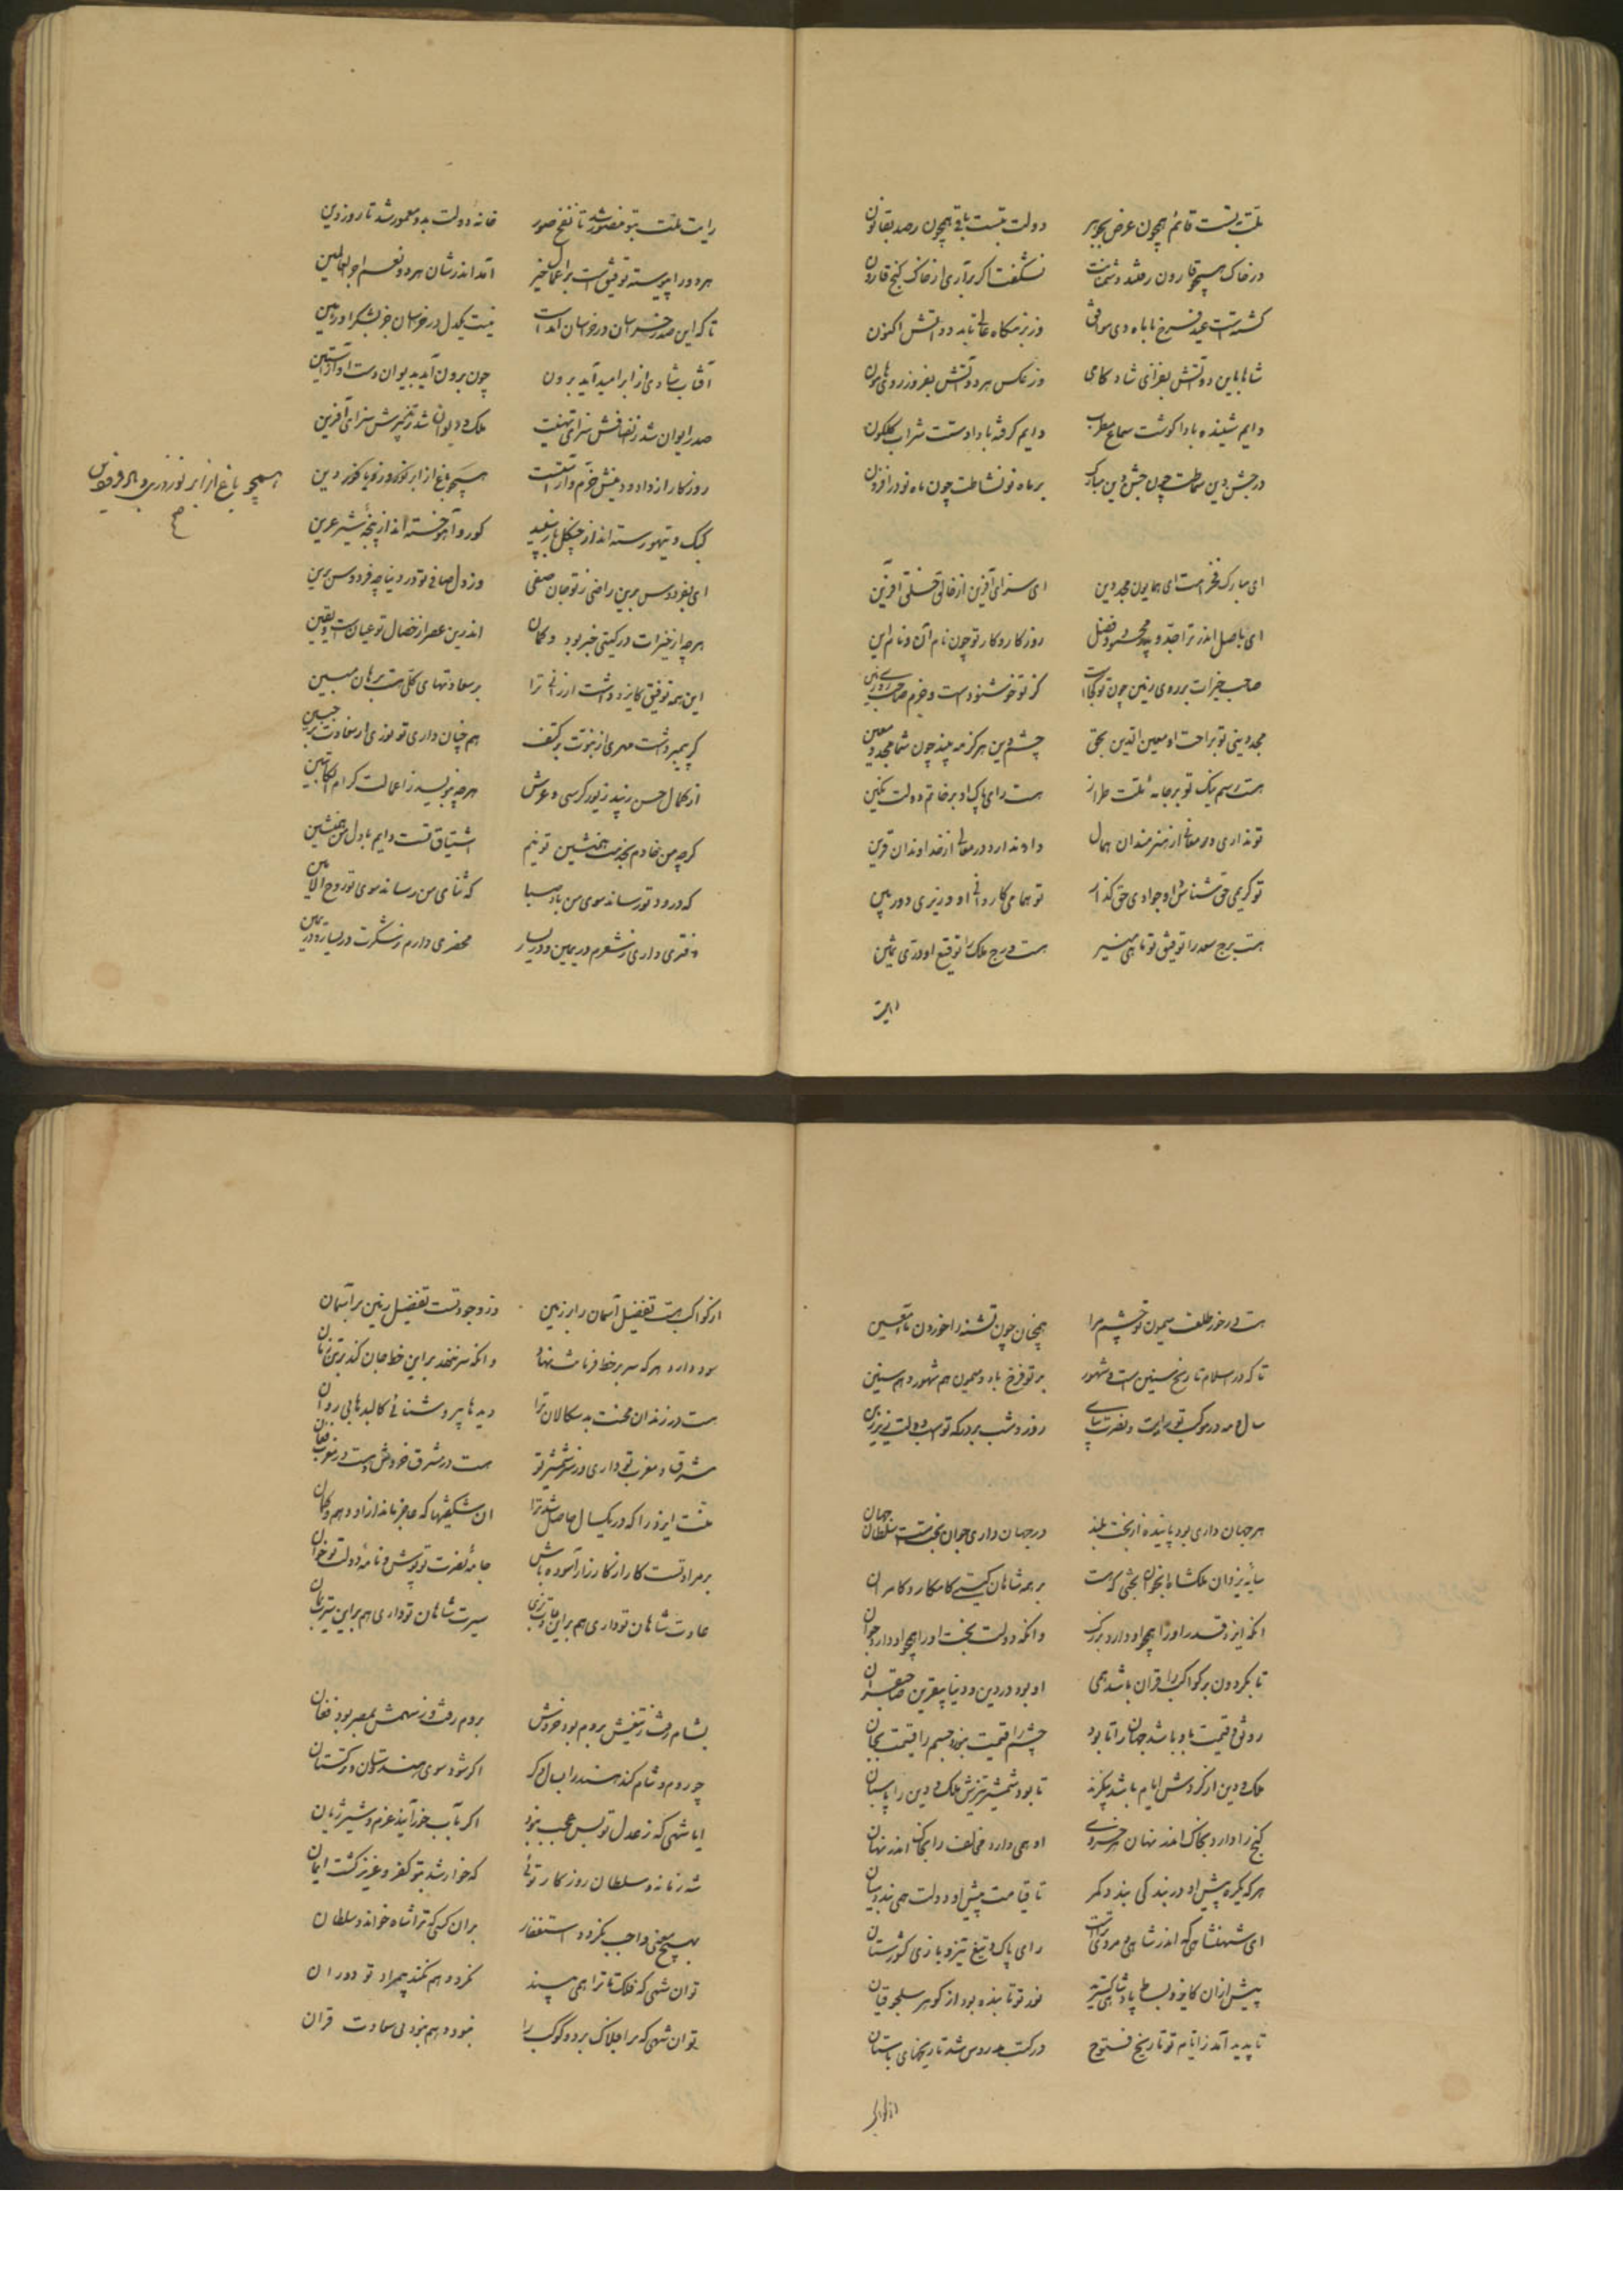 ملت بتست قائم همچون عرض بجوهر دولت بتست باقی همچون رصد بقانون
در خاک همچو قارون رفتند دشمنانت نشگفت اگر برآری از خاک گنج قارون
گشته است عید فرخ با ماه دی موافق وز بزمگاه عالی تابد دو آتش اکنون
شاها باین دو آتش بفزای شادکامی وز عکس هر دو آتش بفروز روی هامون
دایم شنیده بادا گوشت سماع مطرب دایم گرفته بادا دستت شراب گلگون
در جشن دین سماطت چون جشن دین مبارک هر ماه نو نشاطت چون ماه نو در افزون
ای مبارک فخر امت ای همایون مجد دین ای سزای آفرین از خالق خلق آفرین
ای باصل اندر ترا جد و پدر محمود و فضل روزگار و کار تو چون نام آن و نام این
صاحب خیرات بر روی زمین چون تو کجاست کز تو خوشنودست و خرم صاحب روی زمین
مجد دینی تو براحت او معین الدین بحق چشم دین هرگز نه بیند چون شما مجد و معین
هست رسم نیک تو بر جامه ملت طراز هست رای پاک او بر خاتم دولت نگین
تو نداری در معالی از هنرمندان همال او ندارد در معالی از خداوندان قرین
تو کریمی حق شناس او جوادی حق گذار تو همامی کاردانی او وزیری دوربین
هست برج سعد را توقیق تو ماهی منیر هست درج ملک را توقیع او دری ثمین
رایت
رایت ملت بتو منصور شد تا نفخ صور خانه دولت بدو معمور شد تا روز دین
هر دو را پیوسته توفیق است بر اعمال خیر آمد اندر شان هر دو نعم اجر العاملین
تا که این صدر خراسان در خراسان آمدست نیست یکدل در خراسان جز بشکر او رهین
آفتاب شادی از ابر امید آید برون چون برون آید بدیوان دست او از آستین
صدر ایوان شد ز انصافش سزای تهنیت ملک و دیوان شد ز تدبیرش سزای آفرین
روزگار از داد و دینش خرم و آراسته است همچو باغ از ابر نوروز و نو با کوزه دین
همچو باغ از ابر نوروزی و باد فرودین
ح
کبک و تیهو رسته اند از چنگل باز سفید گور و آهو خسته اند از پنجه شیر عرین
ای بفردوس برین راضی ز تو جان صفی وز دل صافی تو در دنیا چو فردوس برین
هرچه از خیرات در گیتی خبر بود و گمان اندرین عصر از خصال تو عیان است و یقین
این همه توفیق کایزد داشت ارزانی ترا بر سعادتهای کلی هست برهان مبین
گر پیمبر داشت مهری از نبوت بر کتف هم چنان داری تو نوری از سعادت بر جبین
از کمال حسن زیبد زیور کرسی و عرش هرچه بنویسد ز اعمالت کرام الکاتبین
گرچه من خادم بخدمت همنشین تو نیم اشتیاق تست دایم با دل من همنشین
که درود تو رساند سوی من باد صبا که ثنای من رساند سوی تو روح الامین
دفتری داری ز شعرم در یمین و در یسار محضری دارم ز شکرت در یسار و در یمین
هست در خور طلعت میمون تو چشم مرا همچنان چون تشنه را خوردن ماء معین
تا که در اسلام تاریخ سنین است و شهور بر تو فرخ باد و میمون هم شهور و هم سنین
سال و مه در موکب تو رایت نصرت بپای روز و شب بر درگه تو اسب دولت زیر زین
هر جهان داری بود پاینده از بخت بلند در جهان داری جوان بخت است سلطان جهان
سایه یزدان ملکشاه بآنجوان بختی که هست بر همه شاهان گیتی کامگار و کامران
آنکه ایزد قدر او را همچو او دارد بزرگ وانکه دولت بخت او را همچو او دارد جوان
تا بگردون بر کواکب را قران باشد همی او بود در دین و دنیا بیقرین صاحبقران
رونق و قیمت بدو باشد جهان را تا بود چشم را قیمت بنور و جسم را قیمت بجان
ملک و دین از گردش ایام باشد بیگزند تا بود شمشیر تیزش ملک و دین را پاسبان
گنج را دارد بخاک اندر نهان هر خسروی او همی دارد مخالف را بخاک اندر نهان
هر که یکره پیش او در بندگی بندد کمر تا قیامت پیش او دولت همی بندد میان
ای شهنشاهی که اندر شاهی و مردی تراست رای پاک و تیغ تیز و بازوی کشورستان
پیش ازان کایزد بساط پادشاهی گسترید نور تو تابنده بود از گوهر سلجوقیان
تا پدید آمد ز ایام تو تاریخ فتوح در کتب مدروس شد تاریخهای باستان
از کواکب
از کواکب هست تفضیل آسمان را بر زمین وز وجود تست تفضیل زمین بر آسمان
سود دارد هر که سر بر خط فرمانت نهاد وانکه سر ننهد برین خط جان کند برین زیان
هست در زندان محنت بدسگالان ترا دیده ها بی روشنائی کالبدها بی روان
مشرق و مغرب تو داری وز سر شمشیر تو هست در مشرق خروش و هست در مغرب فغان
منت ایزد را که در یکسال حاصل شد ترا آن شگفتیها که عاجز ماند ازو وهم و گمان
بر مراد تست کار از کارزار آسوده باش جامه نصرت تو پوش و نامه دولت تو خوان
عادت شاهان تو داری هم برین عادت بزی سیرت شاهان تو داری هم برین سیرت بمان
بشام رفت و ز تیغش بروم بود خروش بروم رفت و ز سهمش بمصر بود فغان
چو روم و شام کند هند را بسال دگر اگر شود سوی هندوستان و ترکستان
ایا شهی که ز عدل تو بس عجب نبود اگر بآب خور آیند غرم و شیر ژیان
شه زمانه و سلطان روزگار توئی که خوار شد بتو کفر و عزیز گشت ایمان
بهیچ معنی واجب نکردد استغفار بران کسی که ترا شاه خواند و سلطان
تو آن شهی که فلک تا ترا همی بیند نکرد و هم نکند بیمراد تو دوران
تو آن شهی که بر افلاک بر دو کوکب را نبود و هم نبود بی سعادت قران